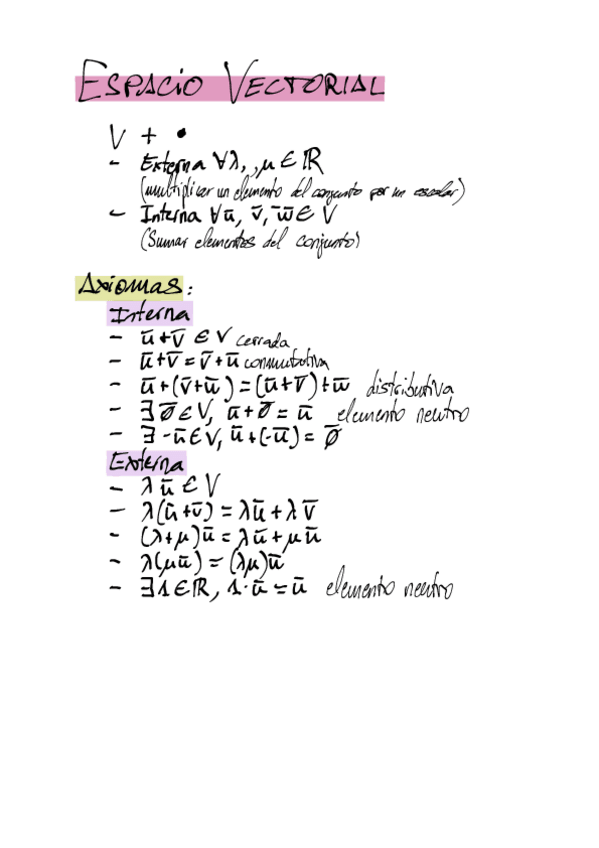 ESPACIO VECTORIAL
V + •
- Externa ∀λ, ,μ ∈ ℝ
(multiplicar un elemento del conjunto por un escalar)
- Interna ∀ū, v̄, w̄ ∈ V
(Sumar elementos del conjunto)
Axiomas:
Interna
- ū+v̄ ∈ V cerrada
- ū+v̄ = v̄+ū conmutativa
- ū+(v̄+ū) = (ū+v̄)+w̄ distributiva
- ∃ 0̄ ∈ V, ū+0̄ = ū elemento neutro
- ∃ -ū ∈ V, ū+(-ū) = 0̄
Externa
- λū ∈ V
- λ(ū+v̄) = λū+λv̄
- (λ+μ)ū = λū+μū
- λ(μū) = (λμ)ū
- ∃1∈ℝ, 1·ū = ū elemento neutro